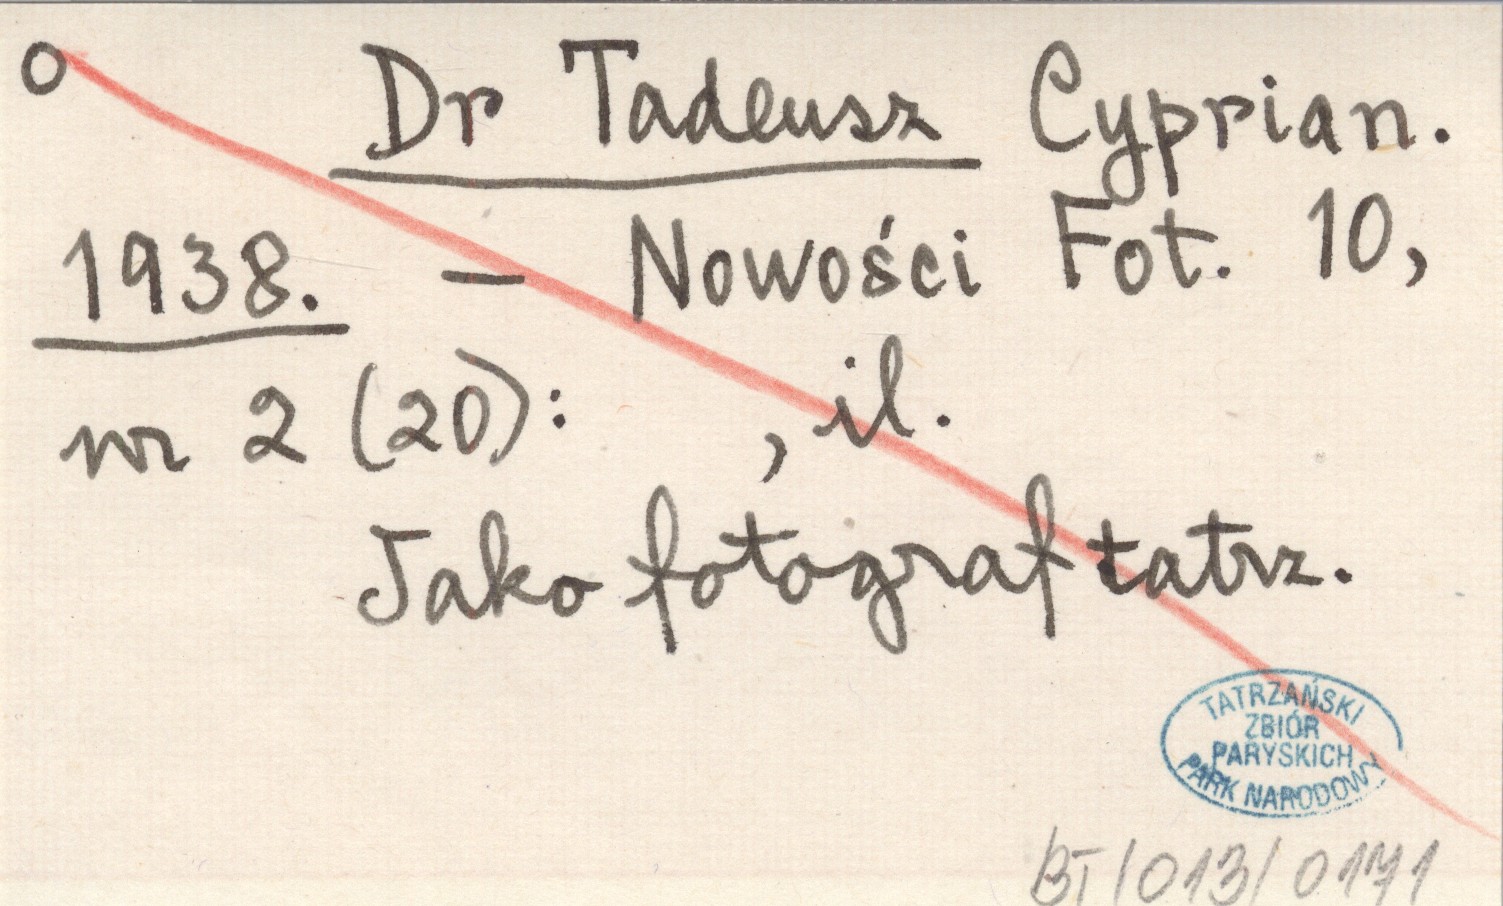 o Dr Tadeusz Cyprian.
1938. – Nowości Fot. 10,
nr 2 (20): , il.
Jako fotograf tatrz.
TATRZAŃSKI
ZBIÓR
PARYSKICH
PARK NARODOWY
BT/013/0171